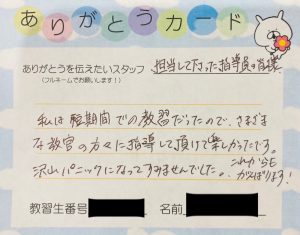 ありがとうカード
ありがとうを伝えたいスタッフ 担当して下さった指導員の皆様
(フルネームでお願いします!)
私は短期間での教習だったので、さまざま
な教官の方々に指導して頂けて楽しかったです。
沢山パニックになってすみませんでした。これからも
がんばります!
教習生番号 名前